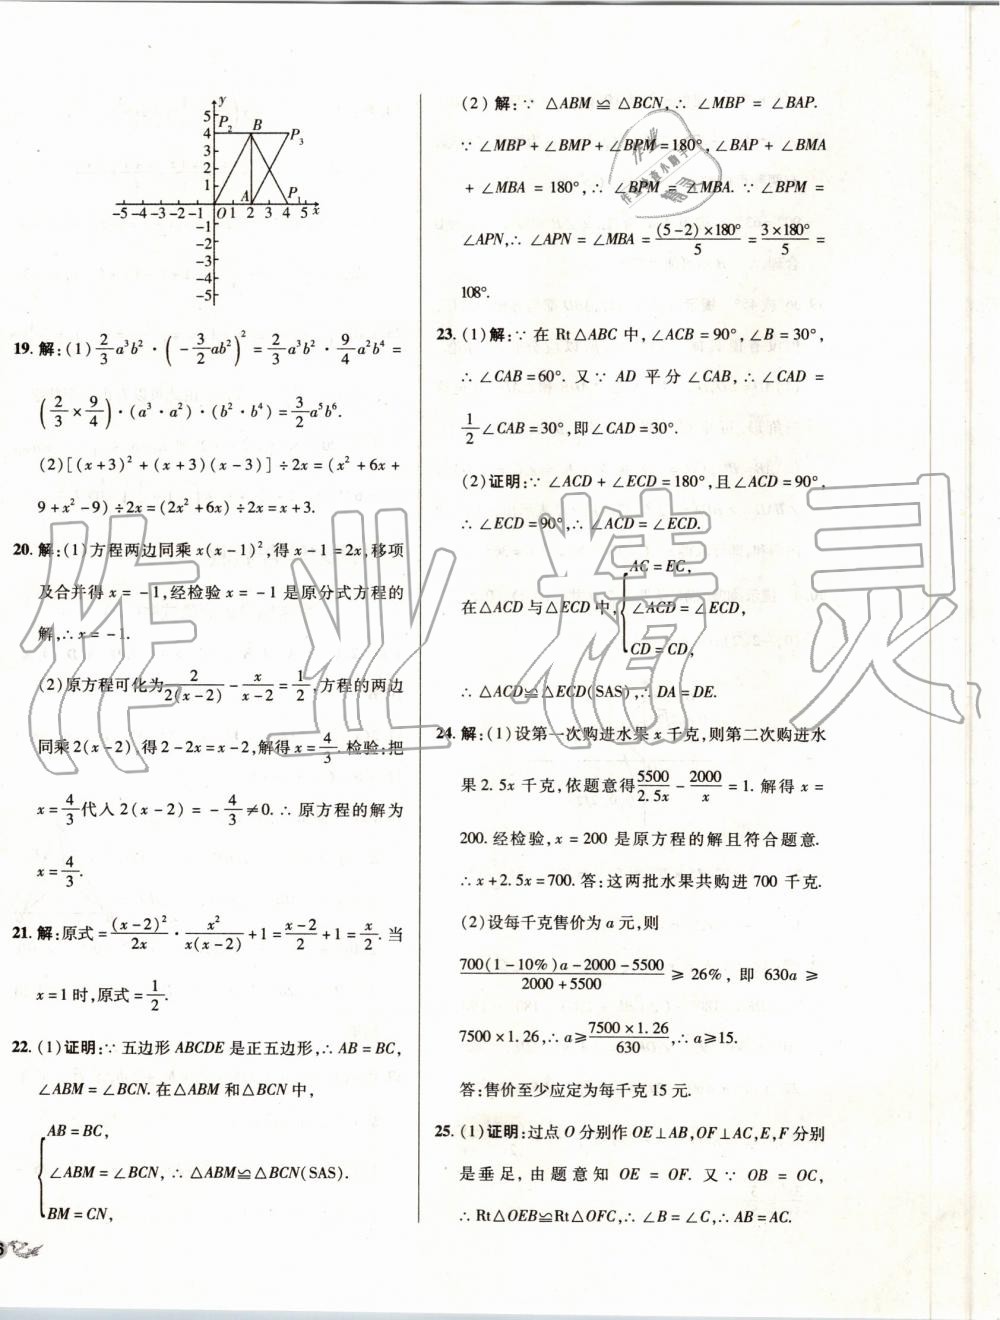 y
5
4
3
2
1
P₂
B
P₃
A
P₁
-5 -4 -3 -2 -1 O 1 2 3 4 5 x
-1
-2
-3
-4
-5
19. 解:(1) 2/3 a³b² · (-3/2 ab²)² = 2/3 a³b² · 9/4 a²b⁴ =
(2/3 × 9/4) · (a³ · a²) · (b² · b⁴) = 3/2 a⁵b⁶.
(2)[(x+3)² + (x+3)(x-3)] ÷2x = (x² + 6x +
9 + x² - 9) ÷2x = (2x² + 6x) ÷2x = x + 3.
20. 解:(1)方程两边同乘 x(x-1)²,得 x-1=2x,移项
及合并得 x = -1,经检验 x = -1 是原分式方程的
解,∴ x = -1.
(2)原方程可化为 2/2(x-2) - x/x-2 = 1/2,方程的两边
同乘2(x-2),得2-2x=x-2,解得x=4/3.检验:把
x=4/3代入2(x-2) = -4/3≠0.∴ 原方程的解为
x=4/3.
21. 解:原式=(x-2)²/2x · x²/x(x-2) +1=x-2/2 +1=x/2. 当
x=1时,原式=1/2.
22. (1)证明:∵ 五边形 ABCDE 是正五边形,∴ AB = BC,
∠ABM = ∠BCN. 在△ABM 和△BCN 中,
AB = BC,
∠ABM = ∠BCN, ∴ △ABM≌△BCN(SAS).
BM = CN,
6
(2) 解:∵ △ABM ≌ △BCN,∴ ∠MBP = ∠BAP.
∵ ∠MBP + ∠BMP + ∠BPM = 180°,∠BAP + ∠BMA
+ ∠MBA = 180°,∴ ∠BPM = ∠MBA. ∵ ∠BPM =
∠APN,∴ ∠APN = ∠MBA = (5-2)×180°/5 = 3×180°/5 =
108°.
23. (1)解:∵ 在 Rt△ABC 中,∠ACB = 90°,∠B = 30°,
∴ ∠CAB = 60°. 又∵ AD 平分∠CAB,∴ ∠CAD =
1/2∠CAB = 30°,即∠CAD = 30°.
(2)证明:∵ ∠ACD + ∠ECD = 180°,且∠ACD = 90°,
∴ ∠ECD = 90°,∴ ∠ACD = ∠ECD.
AC = EC,
在△ACD 与△ECD 中, ∠ACD = ∠ECD,
CD = CD,
∴ △ACD≌△ECD(SAS),∴ DA = DE.
24. 解:(1)设第一次购进水果 x 千克,则第二次购进水
果 2.5x 千克,依题意得 5500/2.5x - 2000/x = 1. 解得 x =
200. 经检验,x = 200 是原方程的解且符合题意.
∴ x+2.5x=700. 答:这两批水果共购进 700 千克.
(2)设每千克售价为 a 元,则
700(1-10%)a-2000-5500/2000+5500 ≥ 26%, 即 630a ≥
7500×1.26,∴ a≥7500×1.26/630,∴ a≥15.
答:售价至少应定为每千克 15 元.
25. (1)证明:过点 O 分别作 OE⊥AB,OF⊥AC,E,F 分别
是垂足, 由题意知 OE = OF. 又∵ OB = OC,
∴ Rt△OEB≌Rt△OFC,∴ ∠B = ∠C,∴ AB = AC.
作业精灵